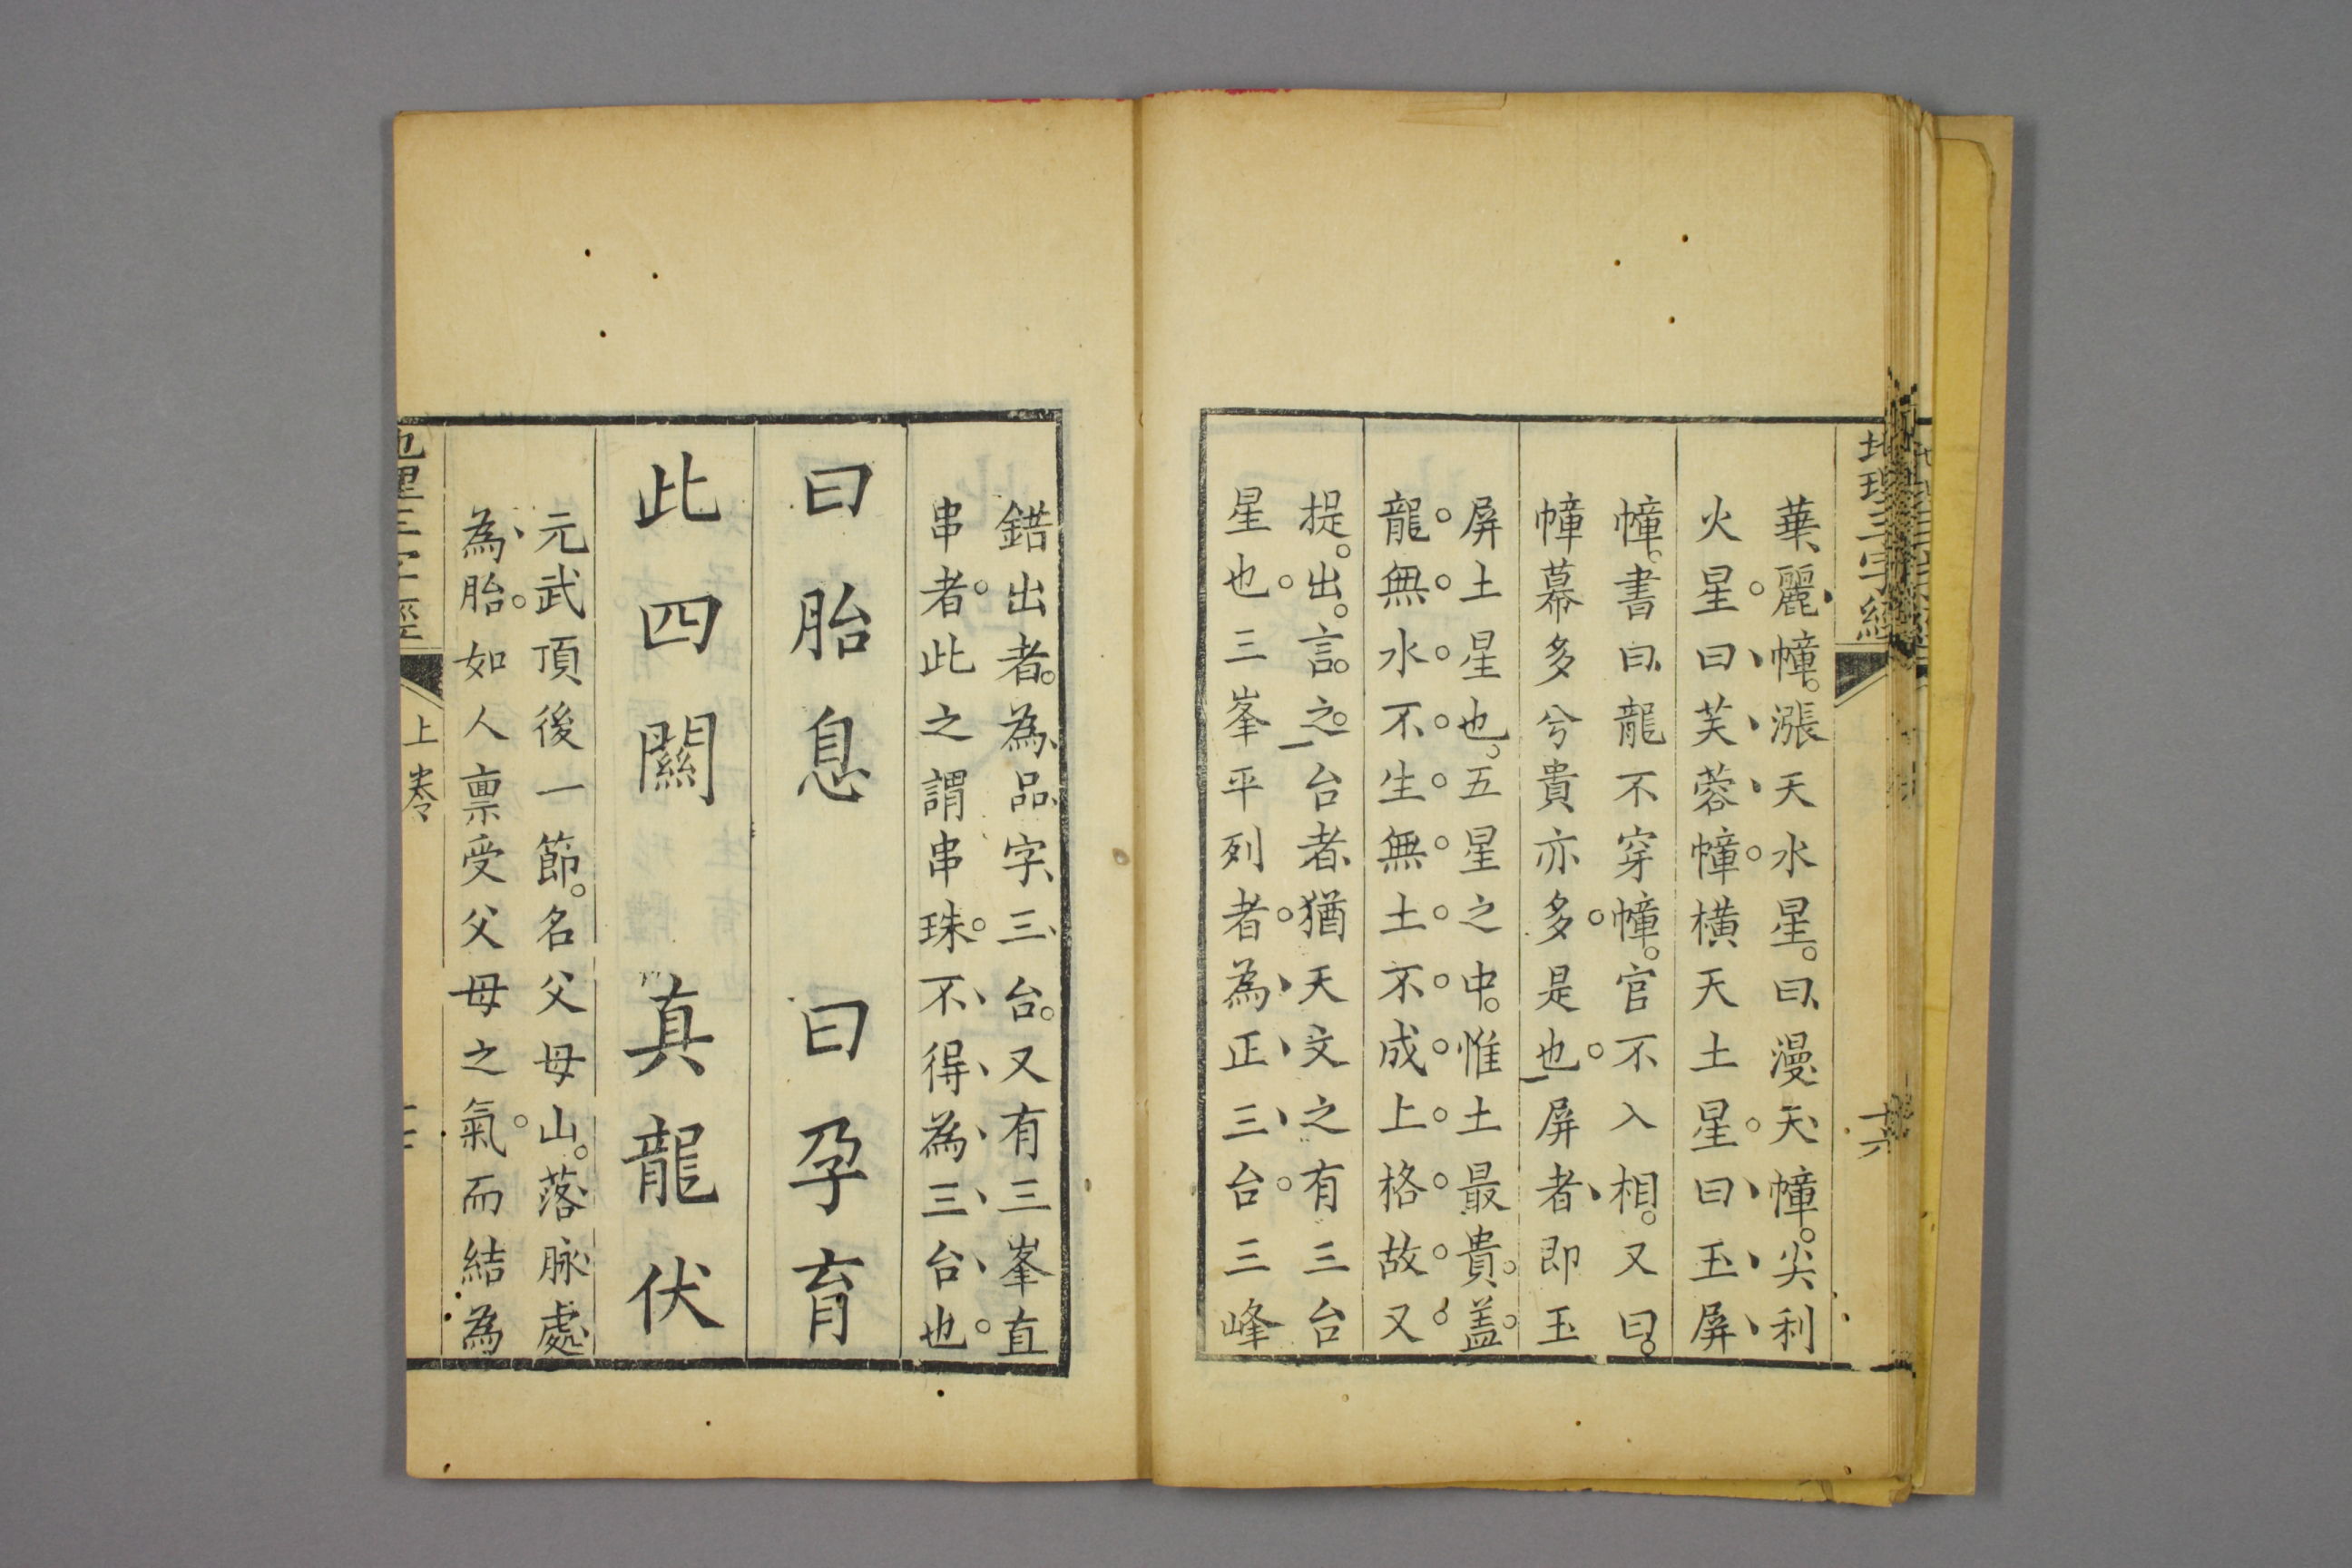 地理三字經
十六
華麗幛。漲天水星。曰漫天幛。尖利
火星。曰芙蓉幛。橫天土星。曰玉屏
幛。書曰龍不穿幛。官不入相。又曰。
幛幕多兮貴亦多。是也。屏者即玉
屏土星也。五星之中。惟土最貴。盖。
龍。無。水。不。生。無。土。不。成。上。格。故。又。
提。出。言。之。台者猶天文之有三台
星也。三峯平列者。為正三台。三峰
錯出者。為品字三台。又有三峯直
串者。此之謂串珠。不得為三台也。
曰胎息　曰孕育
此四關　真龍伏
元武頂後一節。名父母山。落脉處
為胎。如人禀受父母之氣。而結為
地理三字經
上卷